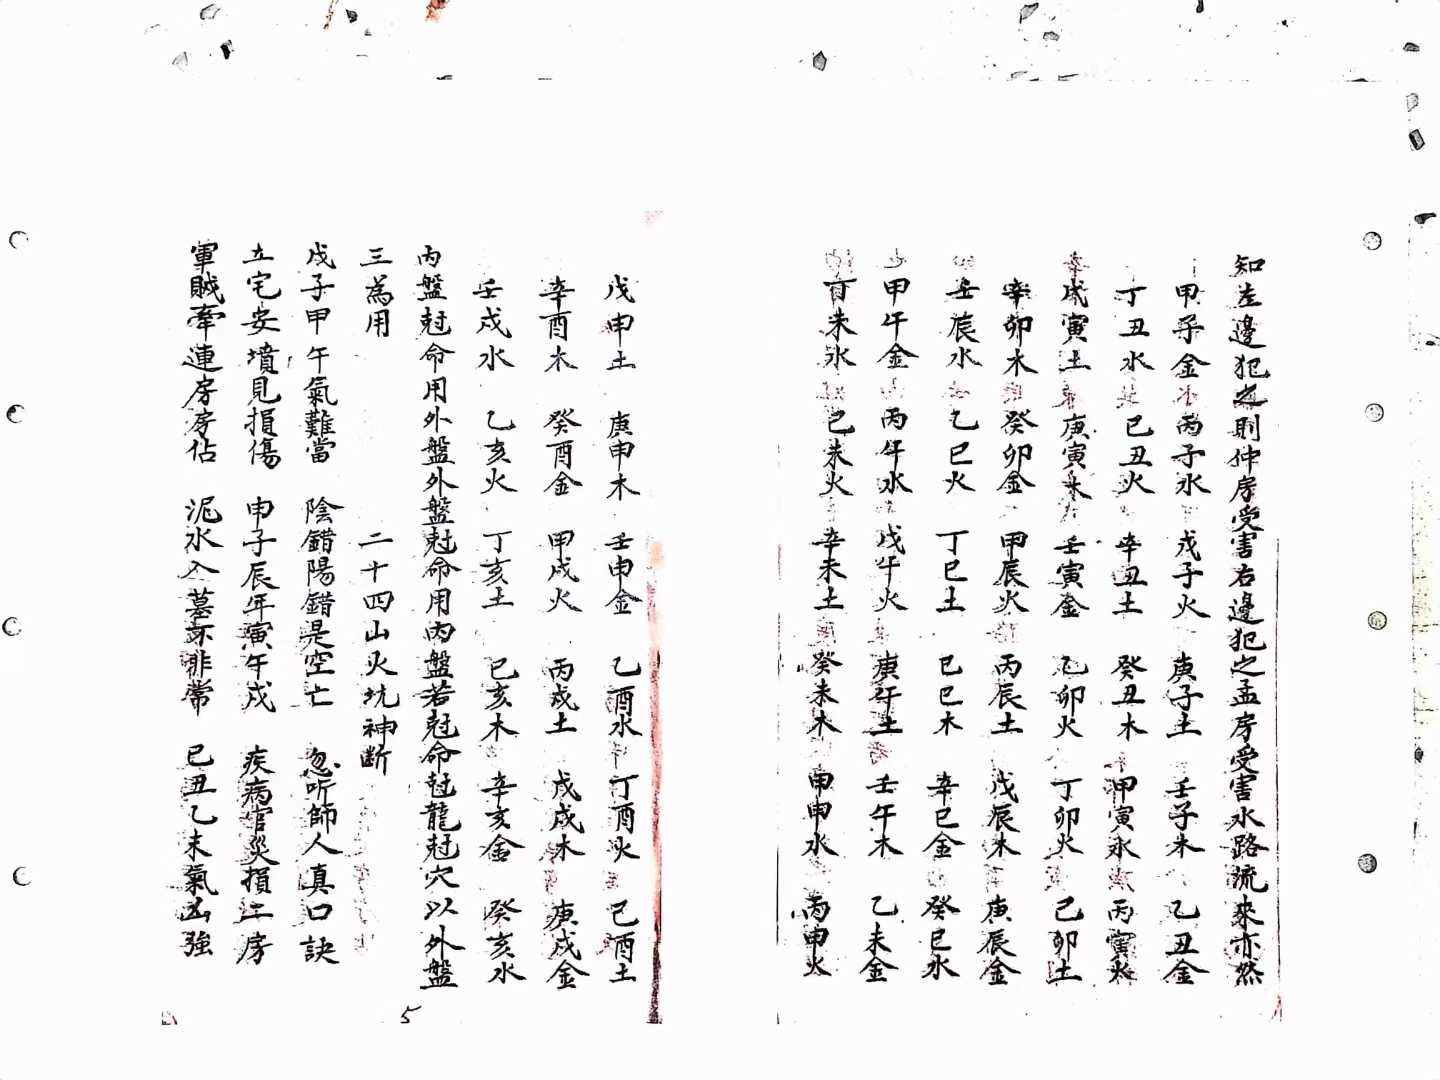 知左邊犯之則仲房受害右邊犯之孟房受害水路流來亦然
甲子金 丙子水 戊子火 庚子土 壬子木 乙丑金
丁丑水 己丑火 辛丑土 癸丑木 甲寅水 丙寅火
戊寅土 庚寅木 壬寅金 乙卯火 丁卯火 己卯土
辛卯木 癸卯金 甲辰火 丙辰土 戊辰木 庚辰金
壬辰水 乙巳火 丁巳土 己巳木 辛巳金 癸巳水
甲午金 丙午水 戊午火 庚午土 壬午木 乙未金
丁未水 己未火 辛未土 癸未木 甲申水 丙申火
戊申土 庚申木 壬申金 乙酉水 丁酉火 己酉土
辛酉木 癸酉金 甲戌火 丙戌土 戊戌木 庚戌金
壬戌水 乙亥火 丁亥土 己亥木 辛亥金 癸亥水
內盤尅命用外盤外盤尅命用內盤若尅命尅龍尅穴以外盤
三為用 二十四山火坑神断
戊子甲午氣難當 陰錯陽錯是空亡 忽听師人真口訣
立宅安墳見損傷 申子辰年寅午戌 疾病官災損二房
軍賊牽連房房佔 泥水入墓不非常 己丑乙未氣凶強
5